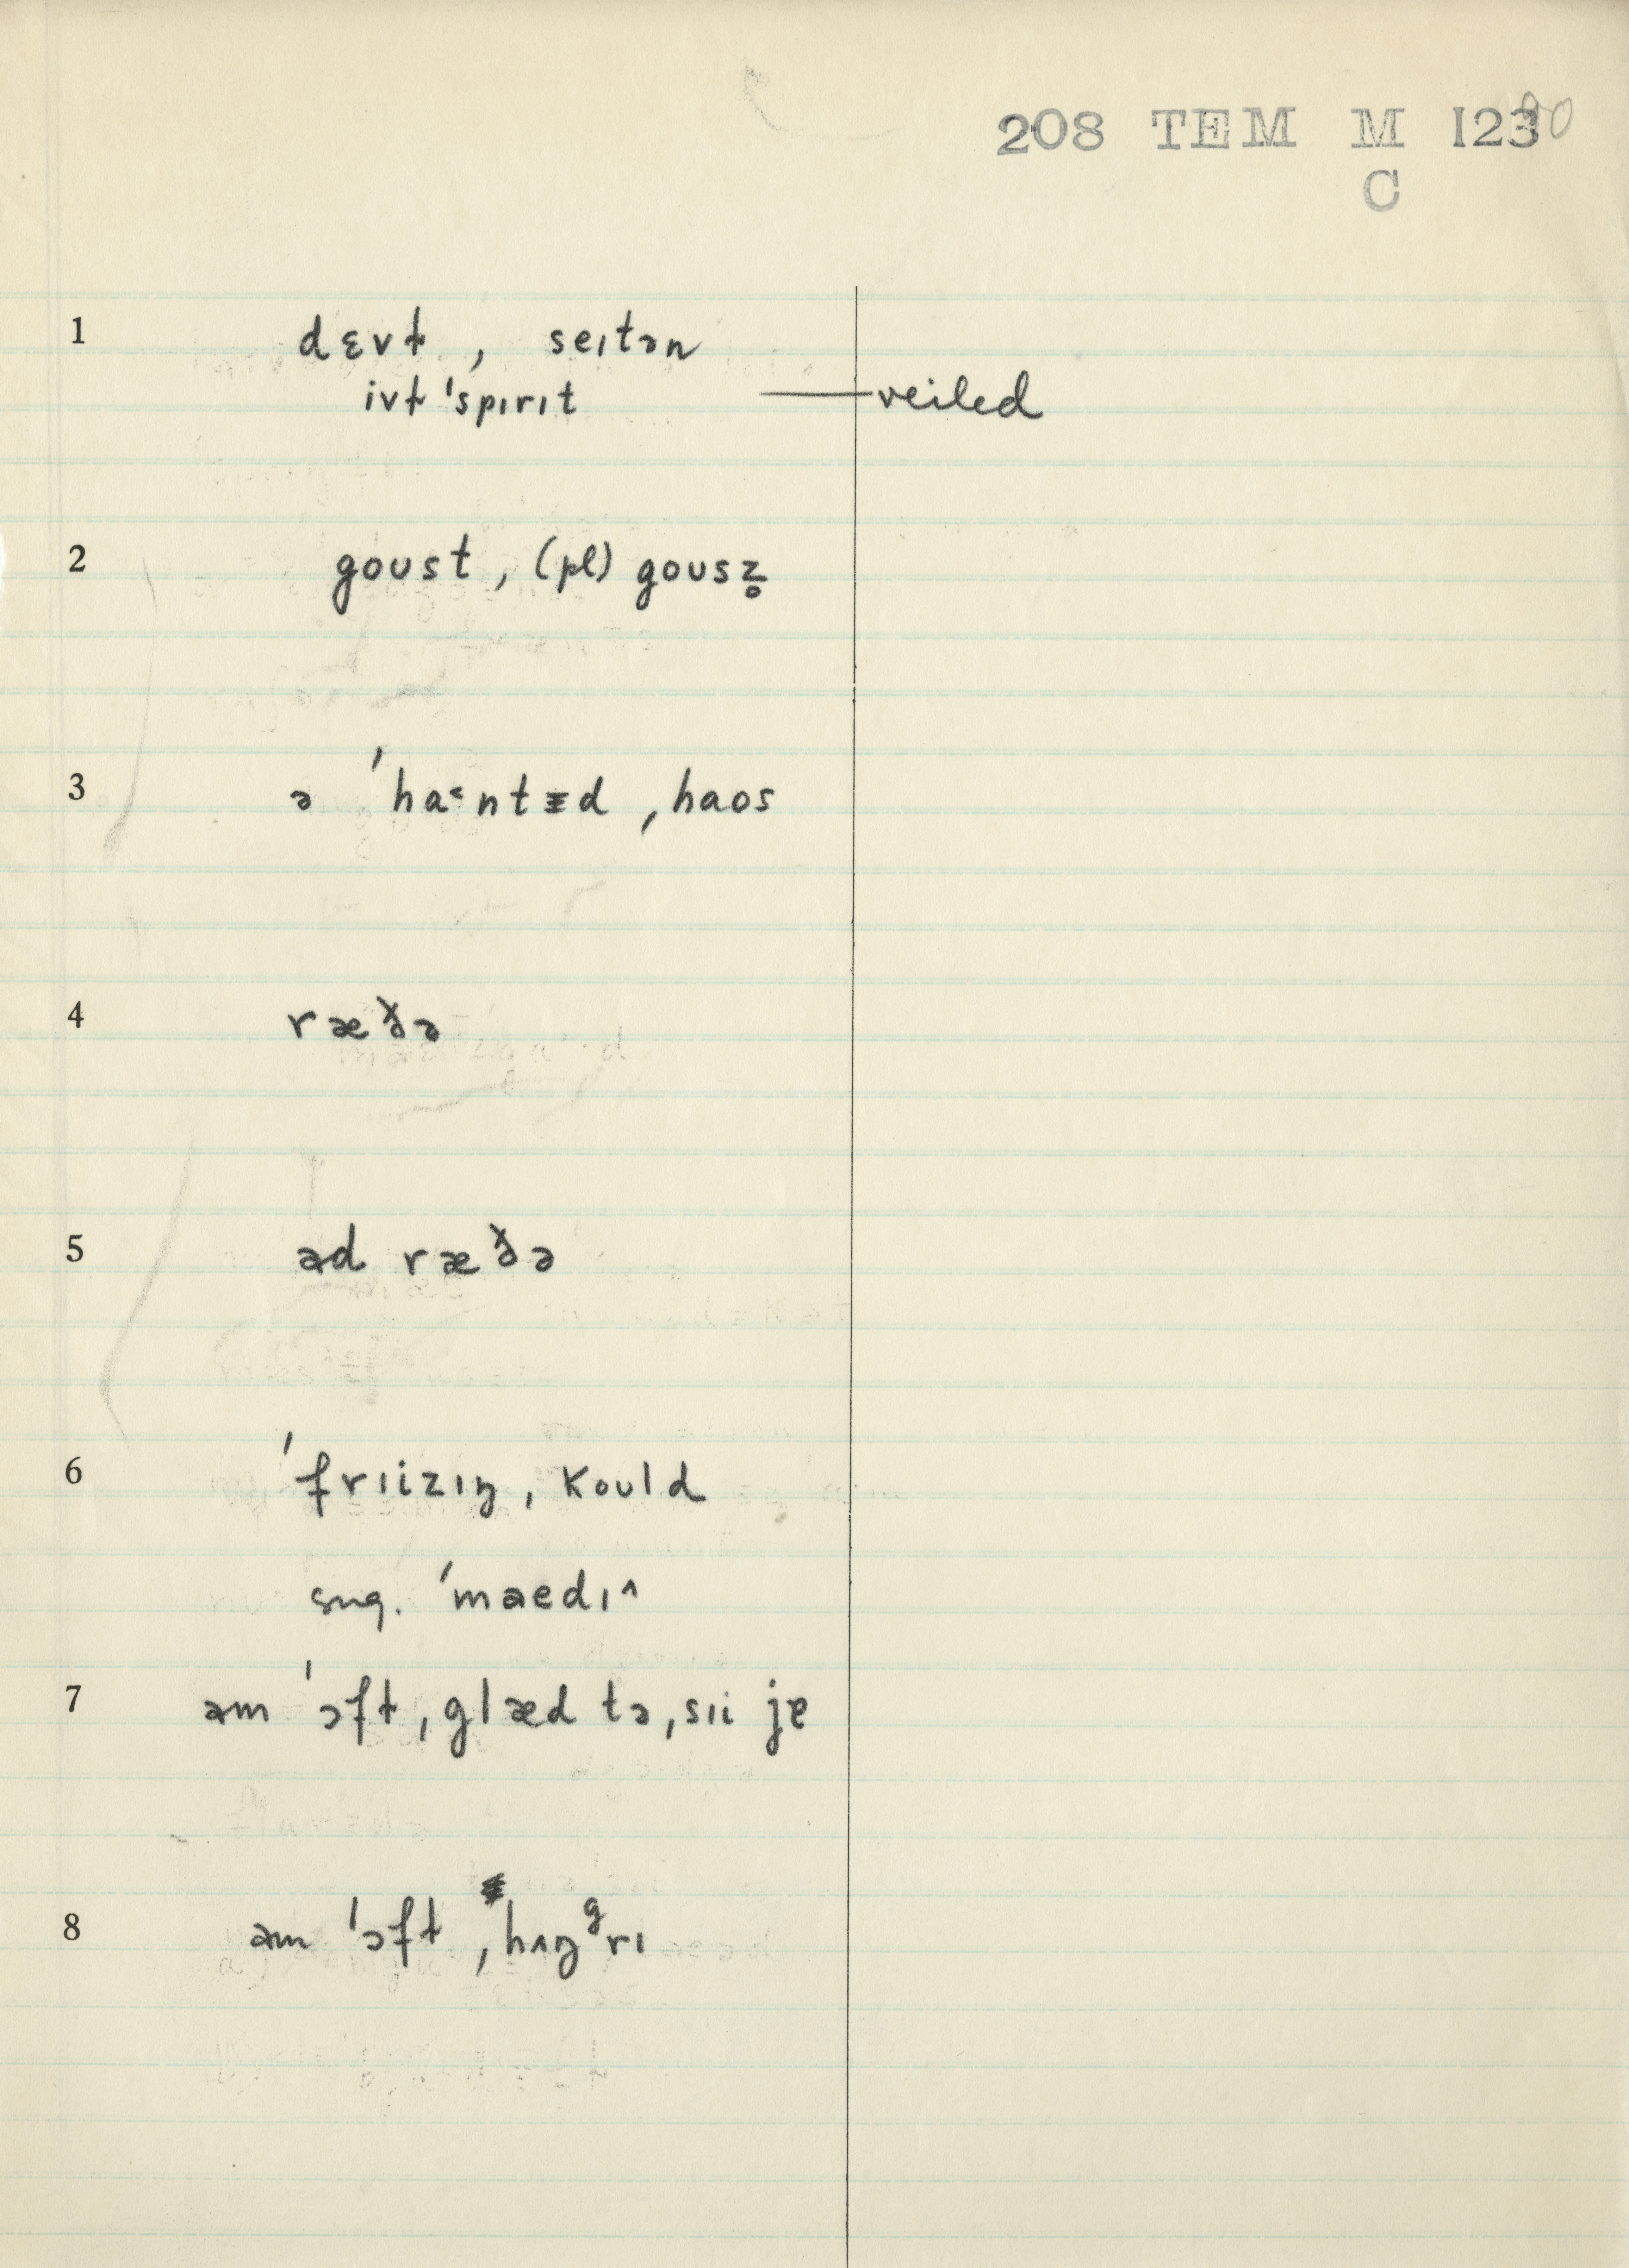 208 TEM M 123
C
1 dɛvɫ , seɪtən
ivɫ 'spɪrɪt — veiled
2 goust , (pl) gousz̥
3 ə 'ha˂ntᵻd , haos
4 ræðə
5 əd ræðə
6 'frɪizɪŋ , kould
sug. 'maedɪ^
7 əm 'ɔfɫ , glæd tə , sɪi jɐ
8 əm 'ɔfɫ , hʌŋᵍrɪ